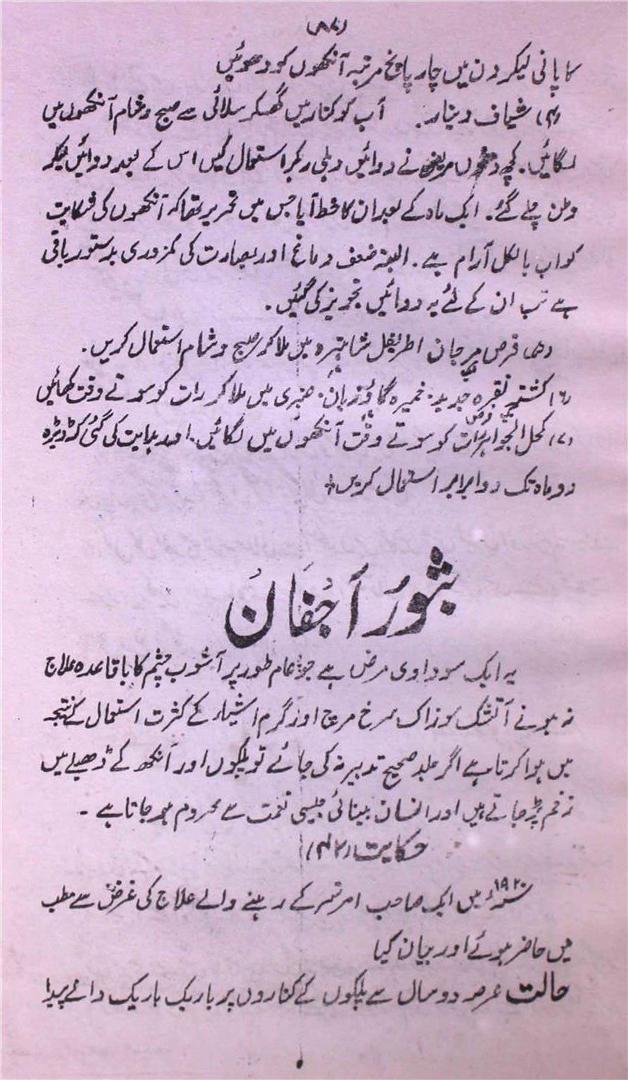 (۸۷)
کا پانی لیکر دن میں چار پانچ مرتبہ آنکھوں کو دھوئیں
(۴) شیاف دینار۔ آب کوکنار میں گھسکر سلائی سے صبح و شام آنکھوں میں
لگائیں۔ کچھ دنوں مریض نے دوائیں دہلی رہکر استعمال کیں اس کے بعد دوائیں لیکر
وطن چلے گئے۔ ایک ماہ کے بعد ان کا خط آیا جس میں تحریر تھا کہ آنکھوں کی شکایت
کو اب بالکل آرام ہے۔ البتہ ضعف دماغ اور بصارت کی کمزوری بدستور باقی
ہے تب ان کے لئے یہ دوائیں تجویز کی گئیں۔
(۵) قرص مرجان اطریفل شاہترہ میں ملا کر صبح و شام استعمال کریں۔
(۶) کشتہ نقرہ جدید۔ خمیرہ گاؤزبان عنبری میں ملا کر رات کو سوتے وقت کھائیں
(۷) کحل الجواہرات کو سوتے وقت آنکھوں میں لگائیں۔ اور ہدایت کی گئی کہ ڈیڑہ
دو ماہ تک دوا برابر استعمال کریں+
بثورُ اَجْفَانْ
یہ ایک سوداوی مرض ہے جو عام طور پر آشوب چشم کا باقاعدہ علاج
نہ ہونے آتشک سوزاک سرخ مرچ اور گرم اشیاء کے کثرت استعمال کے نتیجہ
میں ہوا کرتا ہے اگر جلد صحیح تدبیر نہ کی جائے تو پلکوں اور آنکھ کے ڈھیلے میں
زخم پڑ جاتے ہیں اور انسان بینائی جیسی نعمت سے محروم ہو جاتا ہے۔
حکایت (۴۲)
سنہ ۱۹۲۰ء میں ایک صاحب امرتسر کے رہنے والے علاج کی غرض سے مطب
میں حاضر ہوئے اور بیان کیا
حالت عرصہ دو سال سے پلکوں کے کناروں پر باریک باریک دانے پیدا